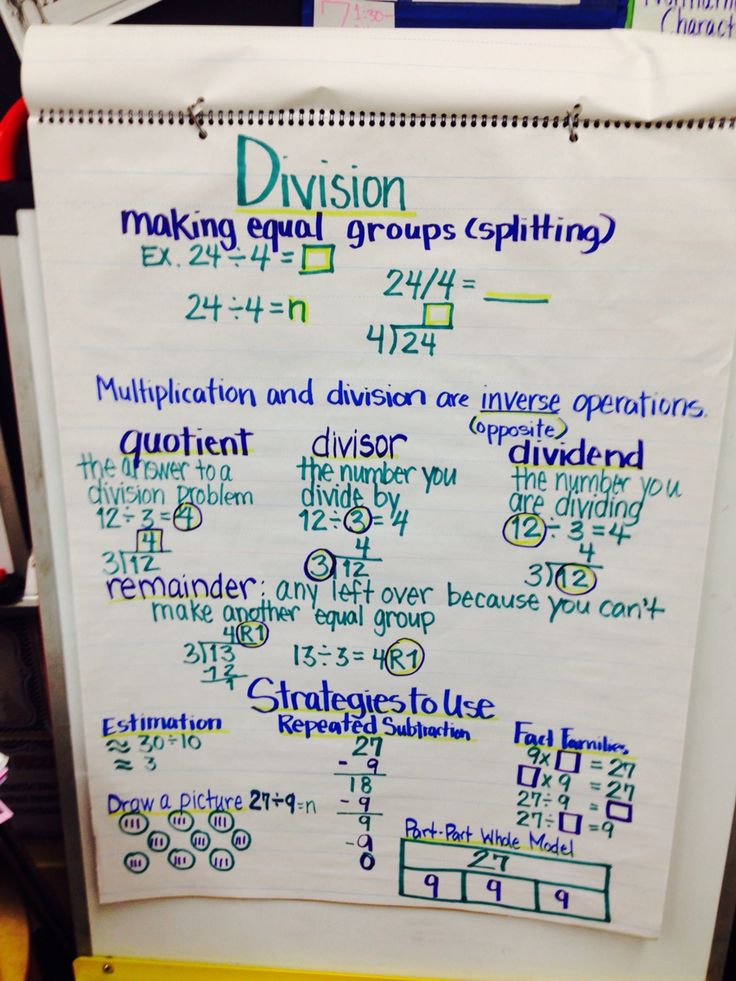 1:30-
Charact
Division
making equal groups (splitting)
Ex. 24÷4=□
24/4=___
24÷4=n
4)24
Multiplication and division are inverse operations.
(opposite)
quotient
the answer to a
division problem
12÷3=4
4
3)12
divisor
the number you
divide by
12÷3=4
4
3)12
dividend
the number you
are dividing
12÷3=4
4
3)12
remainder: any left over because you can't
make another equal group
4R1
3)13
12
1
13÷3=4R1
Strategies to Use
Estimation
≈ 30÷10
≈ 3
Repeated Subtraction
27
- 9
18
- 9
9
-9
0
Fact Families
9x□=27
□x9=27
27÷9=□
27÷□=9
Draw a picture 27÷9=n
Part-Part Whole Model
27
9 9 9